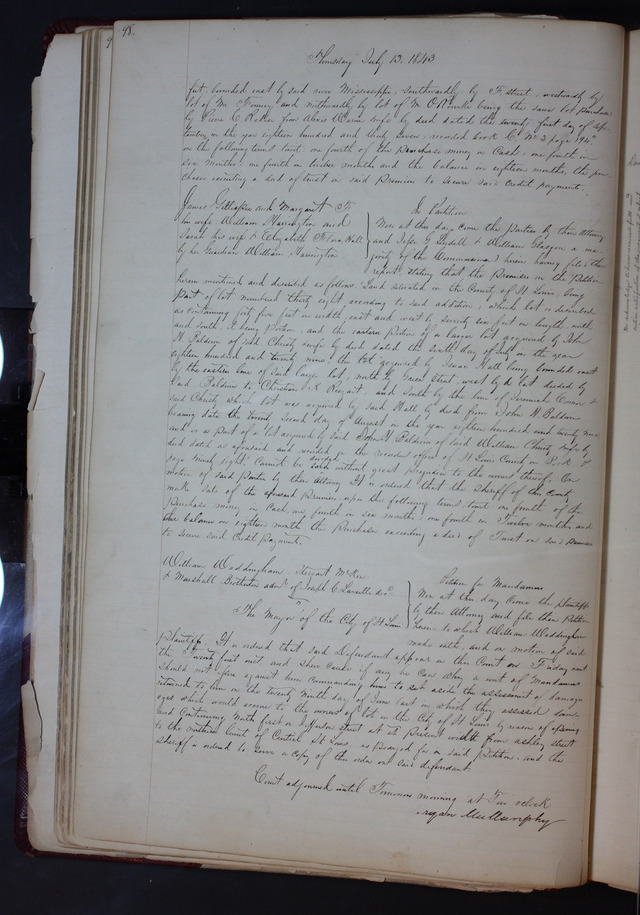 98.
Thursday July 13. 1843
feet, bounded east by said river Mississippi, southwardly by F street, westwardly by
lot of Mr Finney and northwardly by lot of M ORourke being the same lot purchased
by deed dated the twenty first day of Sep
tember in the year eighteen hundred and thirty seven, recorded Book C. No 2 page 194
on the following terms to wit: one fourth of the purchase money in Cash, one fourth in
six months, one fourth in twelve months and the balance in eighteen months, the pur
chaser executing a deed of trust on said Premises to secure said credit payments.
James Gillespie and Margaret
his wife William Harrington and
Sarah his wife & Elizabeth Hall
by her Guardian William Harrington
In Partition
Now at this day come the parties by their Attorney
and William Glasgow a ma
jority of the Commissioners herein having filed their
report stating that the Premises in the Petition
herein mentioned and described as follows. Land situated in the County of St Louis being
Part of lot numbered thirty eight according to said addition, which lot is described
as containing forty five feet in width, east and west by seventy six feet in length, north
and south, it being portion and the eastern Portion of a larger lot acquired by John
H Baldwin of said Christy wife by deed dated the Sixth day of July in the year
eighteen hundred and twenty nine the lot acquired by Isaac Hall being bounded east
by the eastern line of said large lot, north by Green Street west by a lot deeded by
said Baldwin to Christian and South by the line of Jeremiah Connor &
said Christy which lot was acquired by said Hall by deed from John H Baldwin
bearing date the twenty second day of August in the year eighteen hundred and twenty nine
and is a part of a lot acquired by said John H Baldwin of said William Christy wife by
deed dated as aforesaid and recorded in the recorders office of St Louis County in Book
page ninety eight cannot be divided without great prejudice to the owners thereof, On
motion of said Parties by their Attorney It is ordered that the Sheriff of the County
make sale of the aforesaid Premises upon the following terms to wit one fourth of the
Purchase money in Cash one fourth in six months, one fourth in Twelve months, and
the balance in eighteen months the Purchaser executing a deed of Trust on said Premises
to secure said Credit Payments.
William Waddingham, Stewart McKee
& Marshall Brotherton admr of Joseph C Laveille decd
vs
The Mayor of the City of St Louis
Petition for Mandamus
Now at this day Come the plaintiffs
by their Attorney and file their Petition
herein to which William Waddingham
make oath, and on motion of said
plaintiffs, It is ordered that said Defendant appear in this Court on Friday next
the Twenty first inst and shew cause if any he can why a writ of Mandamus
should not issue against him commanding him to set aside the assessment of damages
returned to him on the twenty Ninth day of June last in which they assessed dam
ages which would accrue to the owners of lots in the City of St Louis by reason of opening
and Continuing North first or Main street at its present width from Ashley street
to the northern limit of Central St Louis, as prayed for in said Petition, and the
Sheriff is ordered to serve a copy of this order on said defendant
Court adjourned until Tomorrow morning at Ten oclock
Bryan Mullanphy